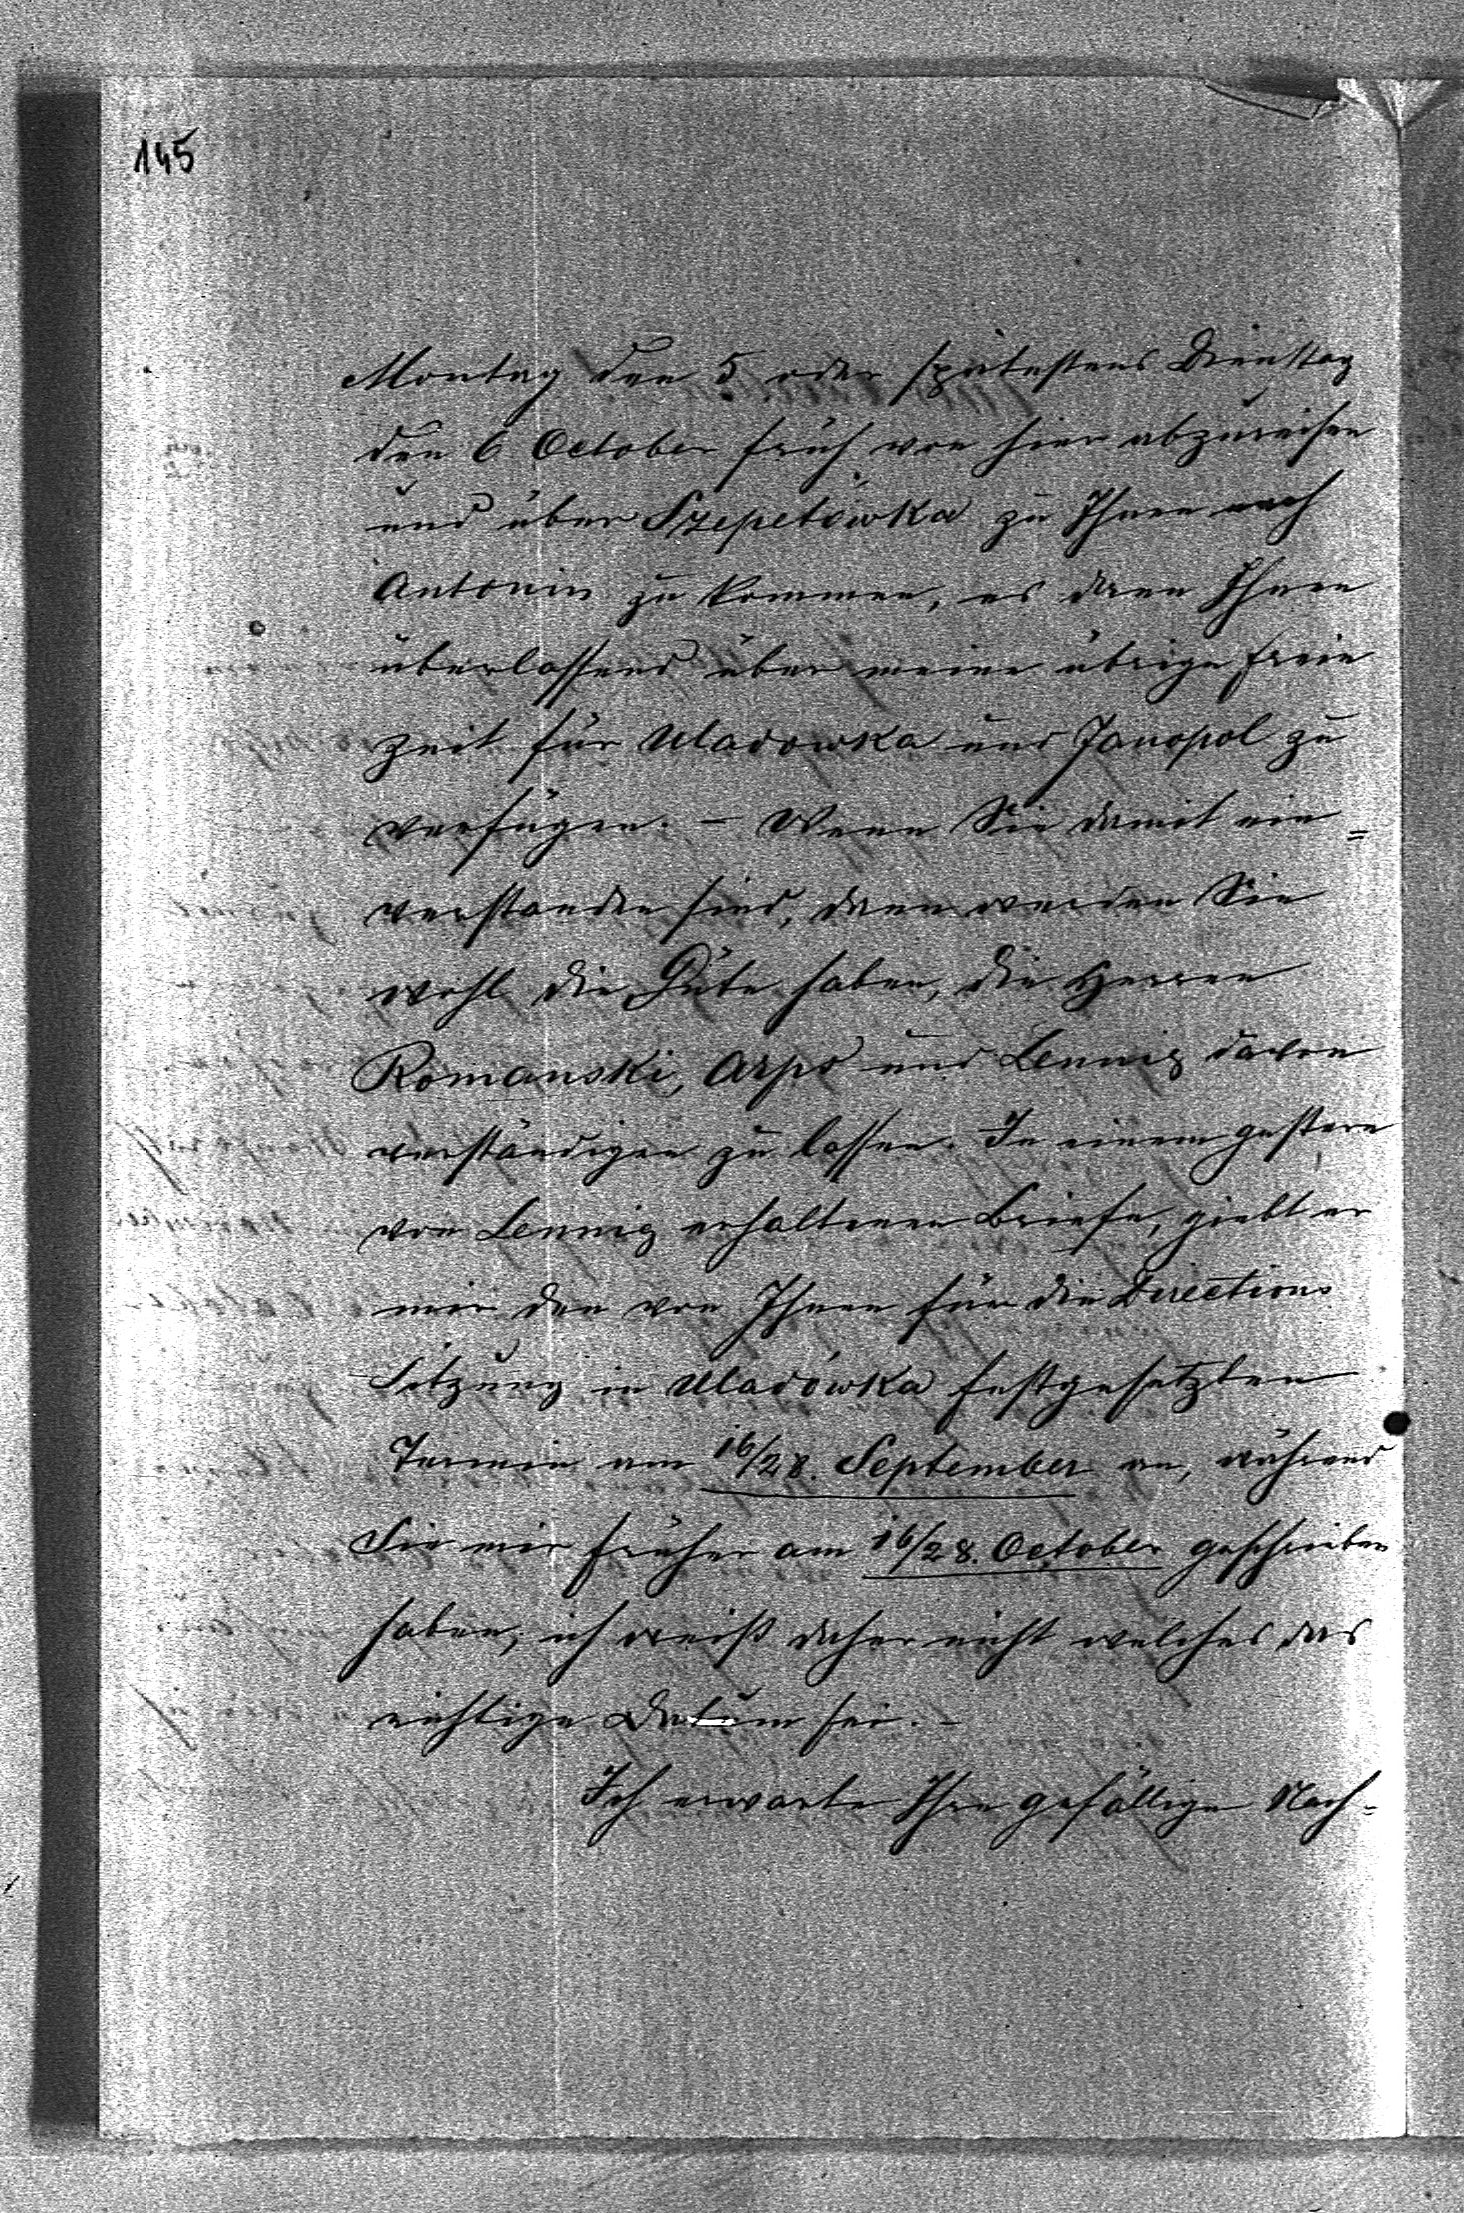 145
Montag den 5 oder spätestens Dienstag
den 6 October früh von hier abzureisen
und über Szepetówka zu Ihnen nach
Antonin zu kommen, es dann Ihnen
überlassend über meine übrige freie
Zeit für Uladowka und Janopol zu
verfügen. – Wenn Sie damit ein=
verstanden sind, dann werden Sie
wohl die Güte haben, die Herren
Romanski, Arps und Lennig davon
verständigen zu lassen. In einem gestern
von Lennig erhaltenen Briefe, giebt er
mir den von Ihnen für die Directions
Sitzung in Uladówka festgesetzten
Termin am 16/28. September an, während
Sie mir früher am 16/28. October geschrieben
haben, ich weiß daher nicht welches das
richtige Datum sei. –
Ich erwarte Ihre gefällige Nach=